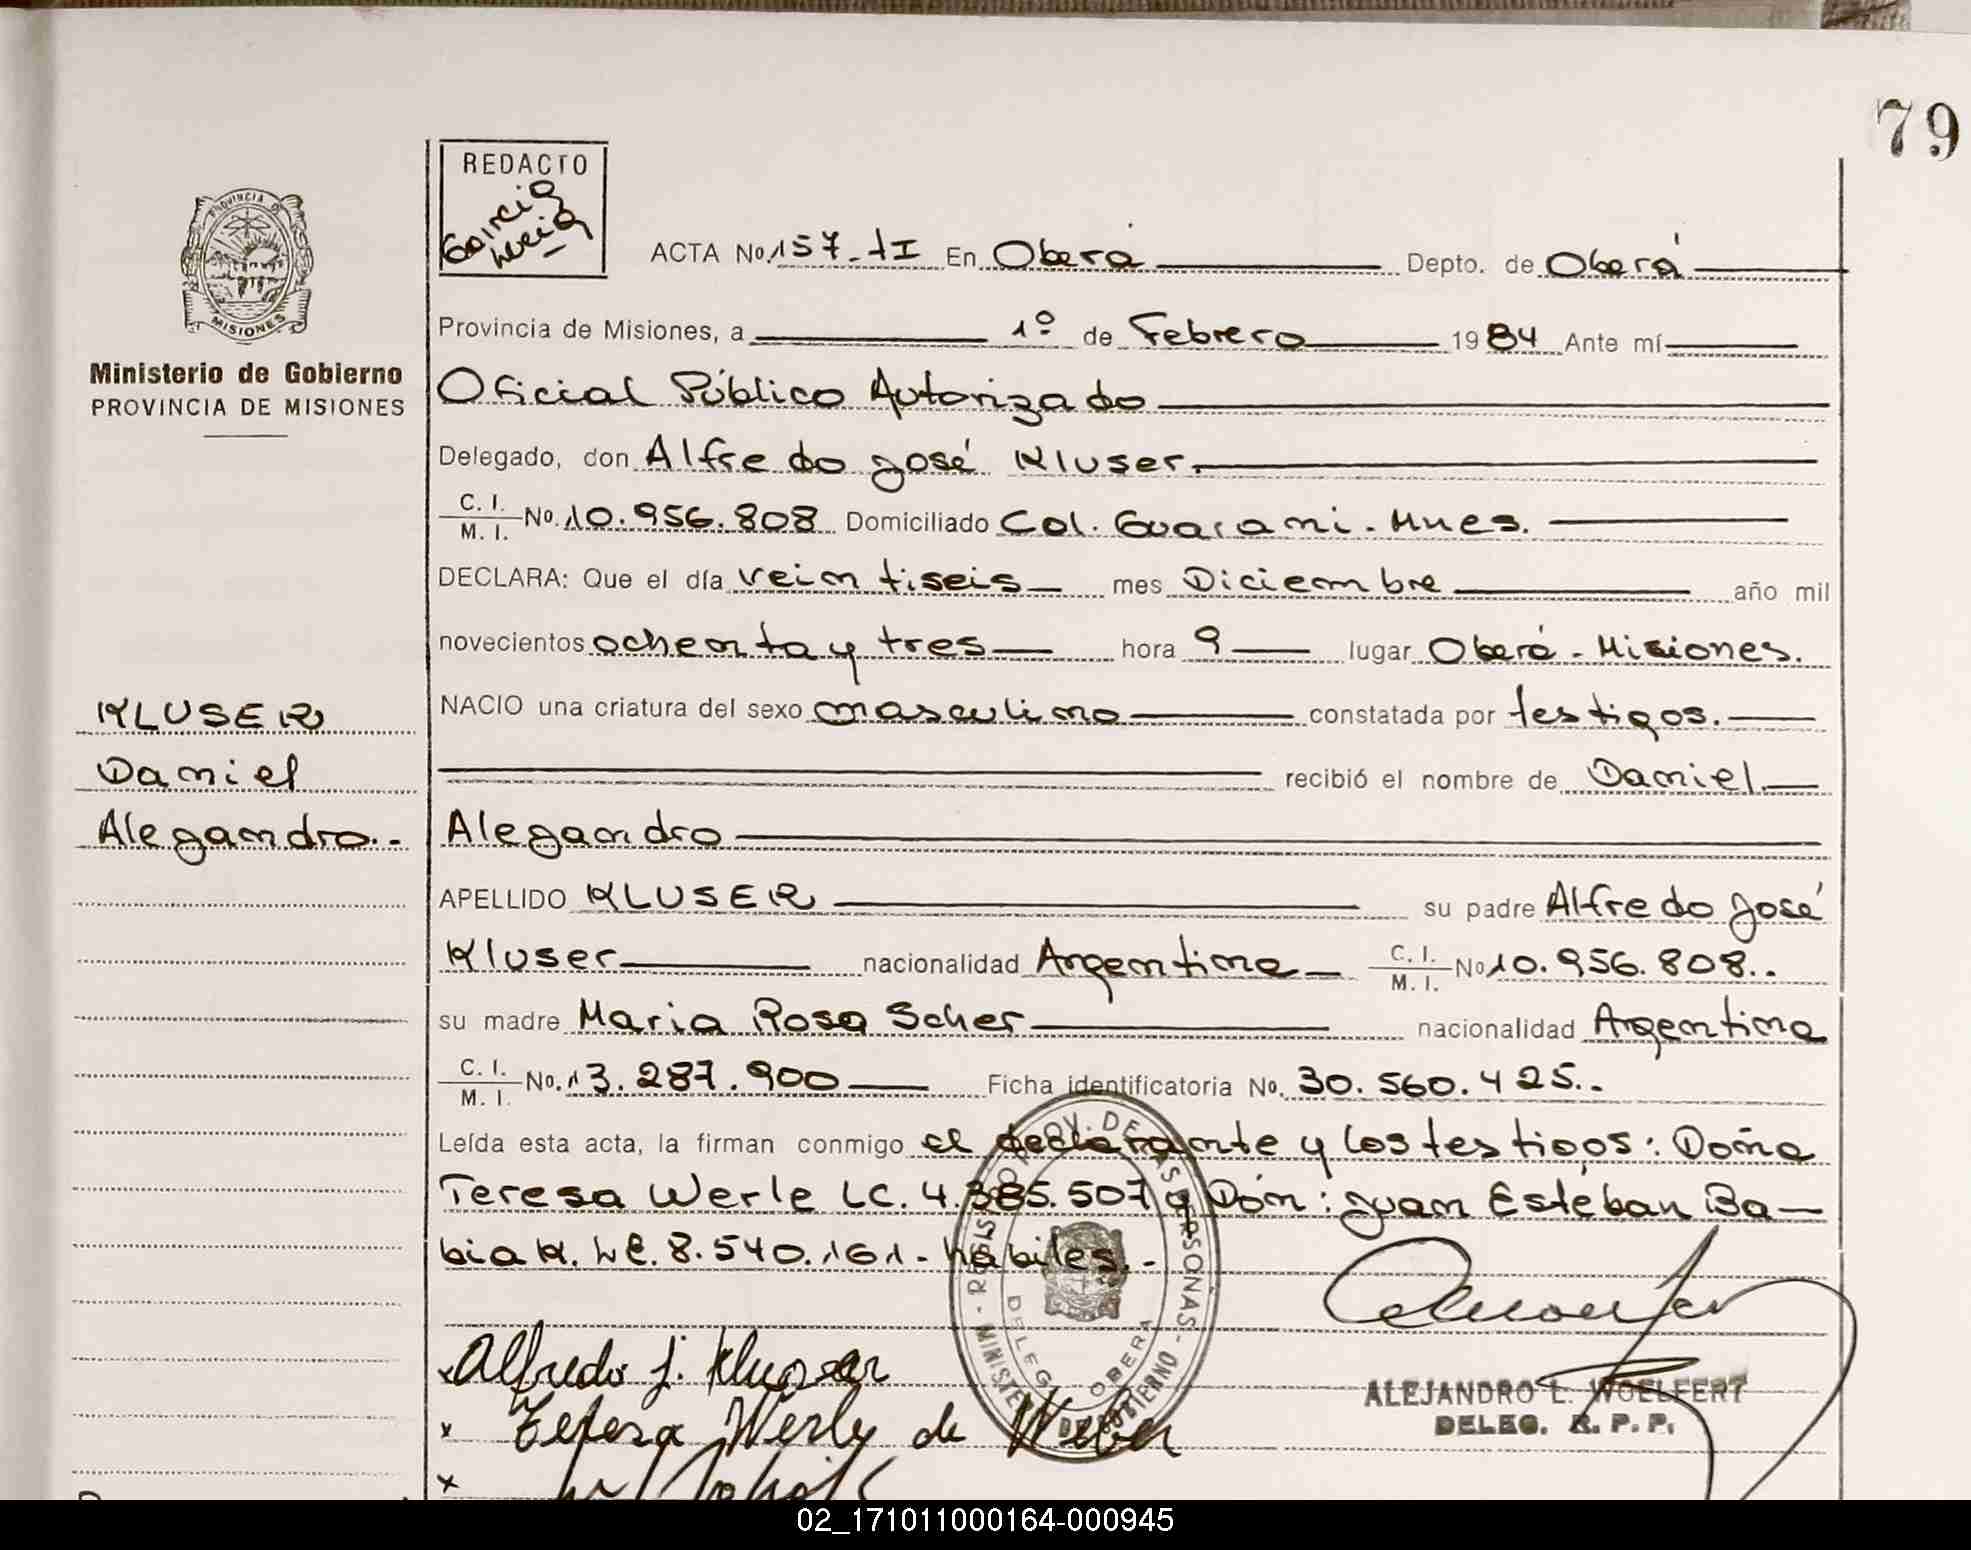 79
REDACTO
Garcia
Lucia
ACTA No. 157-tI En Oberá Depto. de Oberá
PROVINCIA DE
MISIONES
Provincia de Misiones, a 1º de Febrero 1984 Ante mí
Ministerio de Gobierno
PROVINCIA DE MISIONES
Oficial Público Autorizado
Delegado, don Alfredo José Kluser.
C. I. M. I. No. 10.956.808 Domiciliado Col. Guarani - Mnes.
DECLARA: Que el día veintiseis mes Diciembre año mil
novecientos ochenta y tres hora 9 lugar Oberá - Misiones.
NACIO una criatura del sexo masculino constatada por testigos.
recibió el nombre de Daniel
Alegandro
KLUSER
Daniel
Alegandro.-
APELLIDO KLUSER su padre Alfredo José
Kluser nacionalidad Argentina C. I. M. I. No 10.956.808..
su madre Maria Rosa Scher nacionalidad Argentina
C. I. M. I. No. 13.287.900 Ficha identificatoria No. 30.560.425..
Leída esta acta, la firman conmigo el declarante y los testigos: Doña
Teresa Werle LC. 4.385.507 y Don: Juan Estéban Ba-
biak. LE. 8.540.161 - hábiles.-
REGISTRO PROV. DE LAS PERSONAS - MINISTERIO DE GOBIERNO -
DELEG. OBERA
x Alfredo J. Kluser
x Teresa Werle de Weber
x
ALEJANDRO L. WOELFERT
DELEG. R. P. P.
02_171011000164-000945